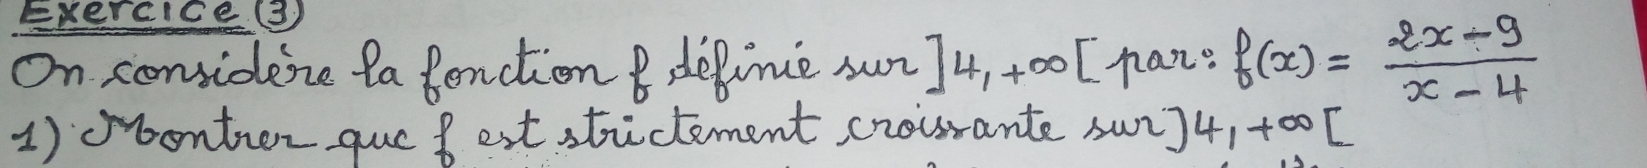 Exercice (3)
On considère la fonction f définie sur ]4, +∞[ par: f(x) = (2x - 9)/(x - 4)
1) Montrer que f est strictement croissante sur ]4, +∞[